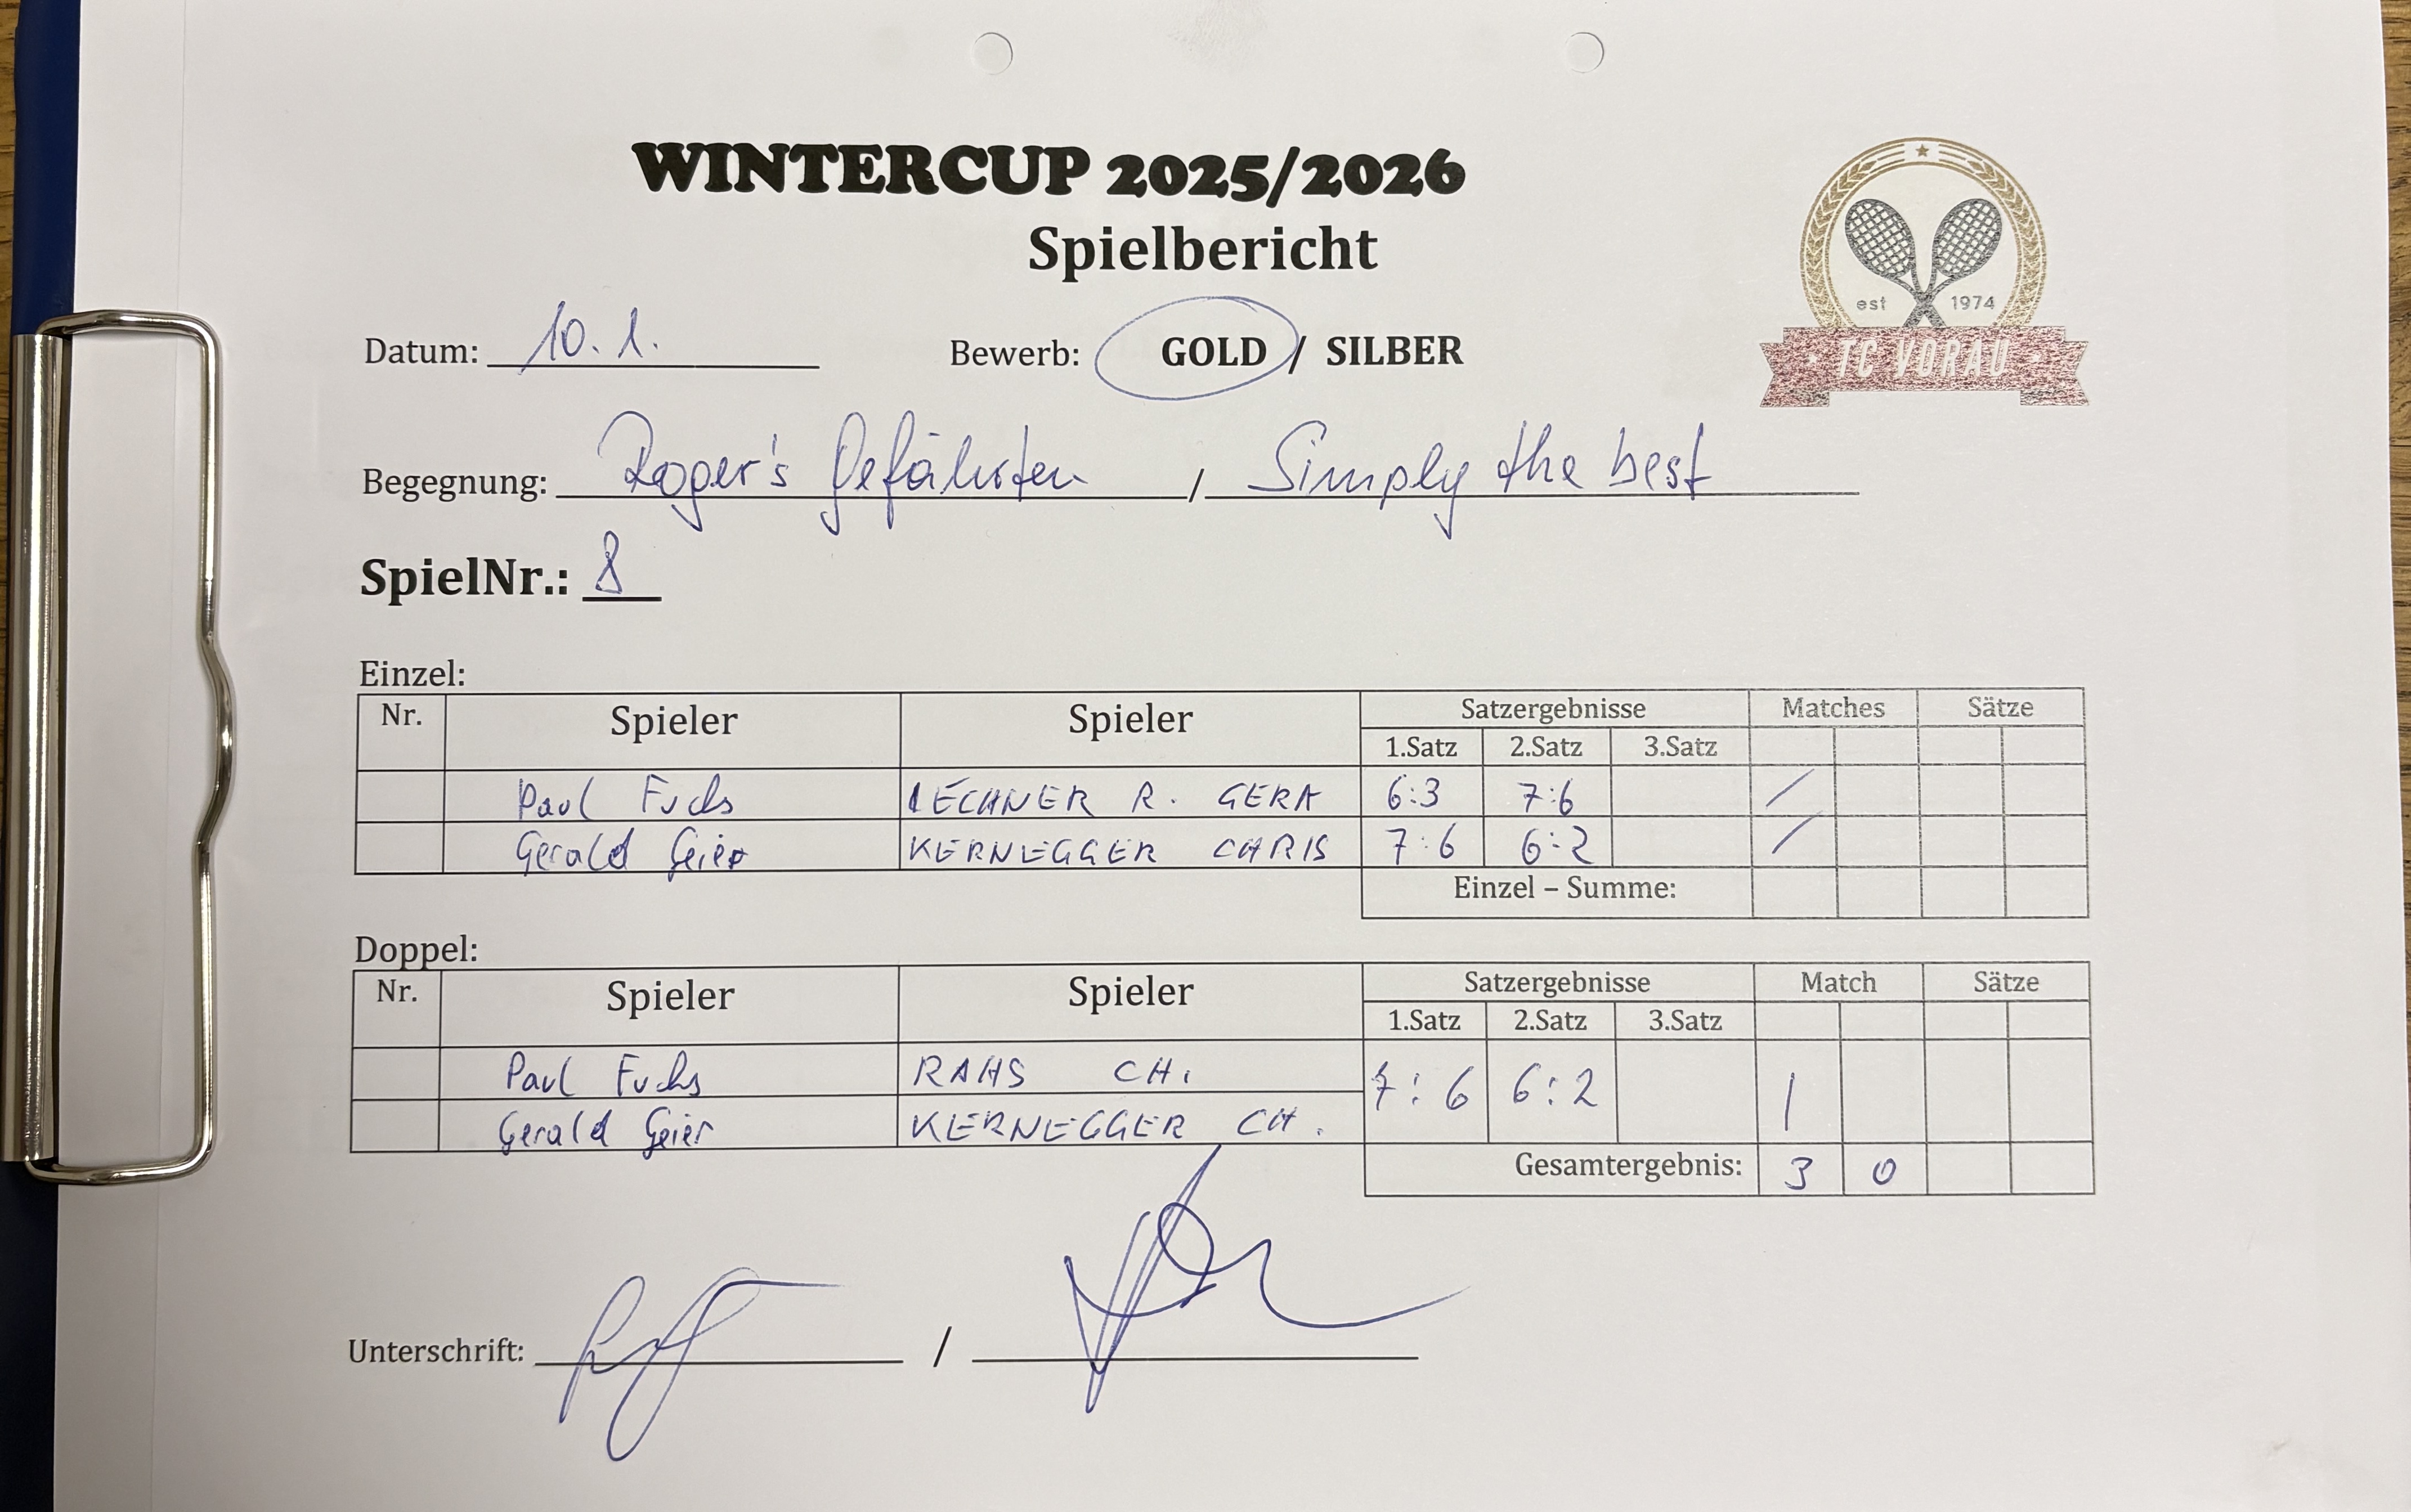 WINTERCUP 2025/2026
Spielbericht
est 1974
TC VORAU
Datum: 10. 1. Bewerb: GOLD / SILBER
Begegnung: Roger's Gefährten / Simply the best
SpielNr.: 8
Einzel:
Nr. Spieler Spieler Satzergebnisse Matches Sätze
1.Satz 2.Satz 3.Satz
Paul Fuchs LECHNER R. GERA 6:3 7:6 /
Gerald Geier KERNEGGER CHRIS 7:6 6:2 /
Einzel – Summe:
Doppel:
Nr. Spieler Spieler Satzergebnisse Match Sätze
1.Satz 2.Satz 3.Satz
Paul Fuchs RAHS CH. 7:6 6:2 |
Gerald Geier KERNEGGER CH.
Gesamtergebnis: 3 0
Unterschrift: /